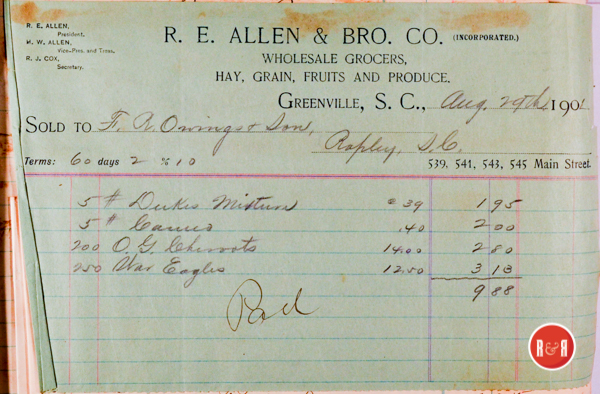 R. E. ALLEN,
President.
H. W. ALLEN,
Vice-Pres. and Treas.
R. J. COX,
Secretary.
R. E. ALLEN & BRO. CO. (INCORPORATED.)
WHOLESALE GROCERS,
HAY, GRAIN, FRUITS AND PRODUCE.
GREENVILLE, S. C., Aug. 29th 1901
SOLD TO F. R. Owings & Son,
Rapley, S.C.
Terms: 60 days 2 % 10
539, 541, 543, 545 Main Street.
5 # Dukes Mixture 39 1 95
5 # .40 2 00
200 O. G. Cheroots 14.00 2 80
250 War Eagles 12.50 3 13
9 88
Pad
R&R